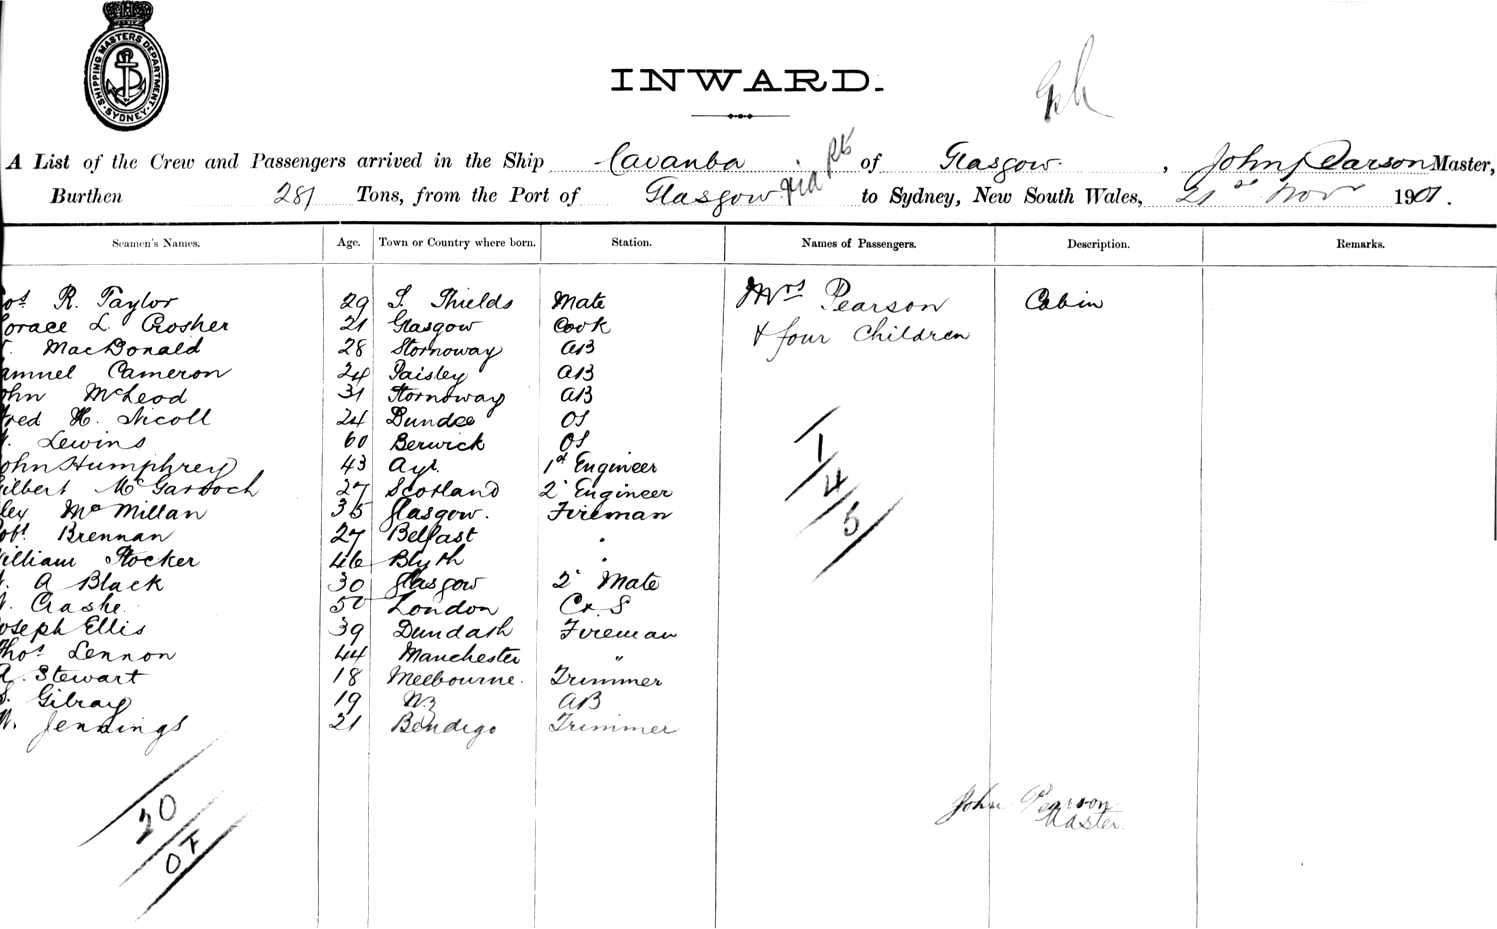 SHIPPING MASTERS DEPARTMENT
SYDNEY
INWARD.
A List of the Crew and Passengers arrived in the Ship Cavanba of Glasgow, John Pearson Master,
Burthen 281 Tons, from the Port of Glasgow via to Sydney, New South Wales, 21st Nov 1901.
Seamen's Names. Age. Town or Country where born. Station. Names of Passengers. Description. Remarks.
R. Taylor 29 S. Shields Mate Mrs Pearson Cabin
orace L. Crosher 21 Glasgow Cook & four Children
MacDonald 28 Stornoway AB
amuel Cameron 24 Paisley AB
ohn McLeod 31 Stornoway AB
red H. Nicoll 24 Dundee OS
Lewins 60 Berwick OS
ohn Humphrey 43 Ayr. 1st Engineer
ilbert McGarroch 27 Scotland 2d Engineer
lex McMillan 35 Glasgow. Fireman
obt Brennan 27 Belfast "
illiam Stocker 46 Blyth "
A Black 30 Glasgow 2d Mate
Crashe 50 London Ch S
oseph Ellis 39 Dundash Fireman
Thos Lennon 44 Manchester "
A. Stewart 18 Melbourne. Trimmer
S. Gilray 19 NZ AB
W. Jennings 21 Bendigo Trimmer
1
4
5
20
07
John Pearson
Master